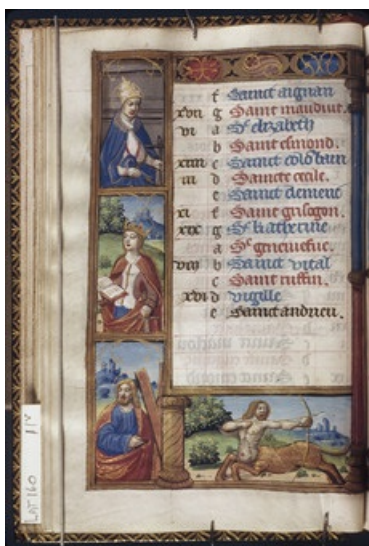 f Sainct aignan
xvii g Sainct maudiut.
vi a Sᵉ elizabeth
b Sainct esmond.
xiiii c Sainct colōbain
iii d Saincte cecile.
e Sainct clement
xi f Sainct grisogon.
xix g Sᵉ katherine
a Sᵉ geneuiefue.
viii b Sainct vital
c Sainct ruffin.
xvi d vigille
e Sainct andrieu.
LAT 160